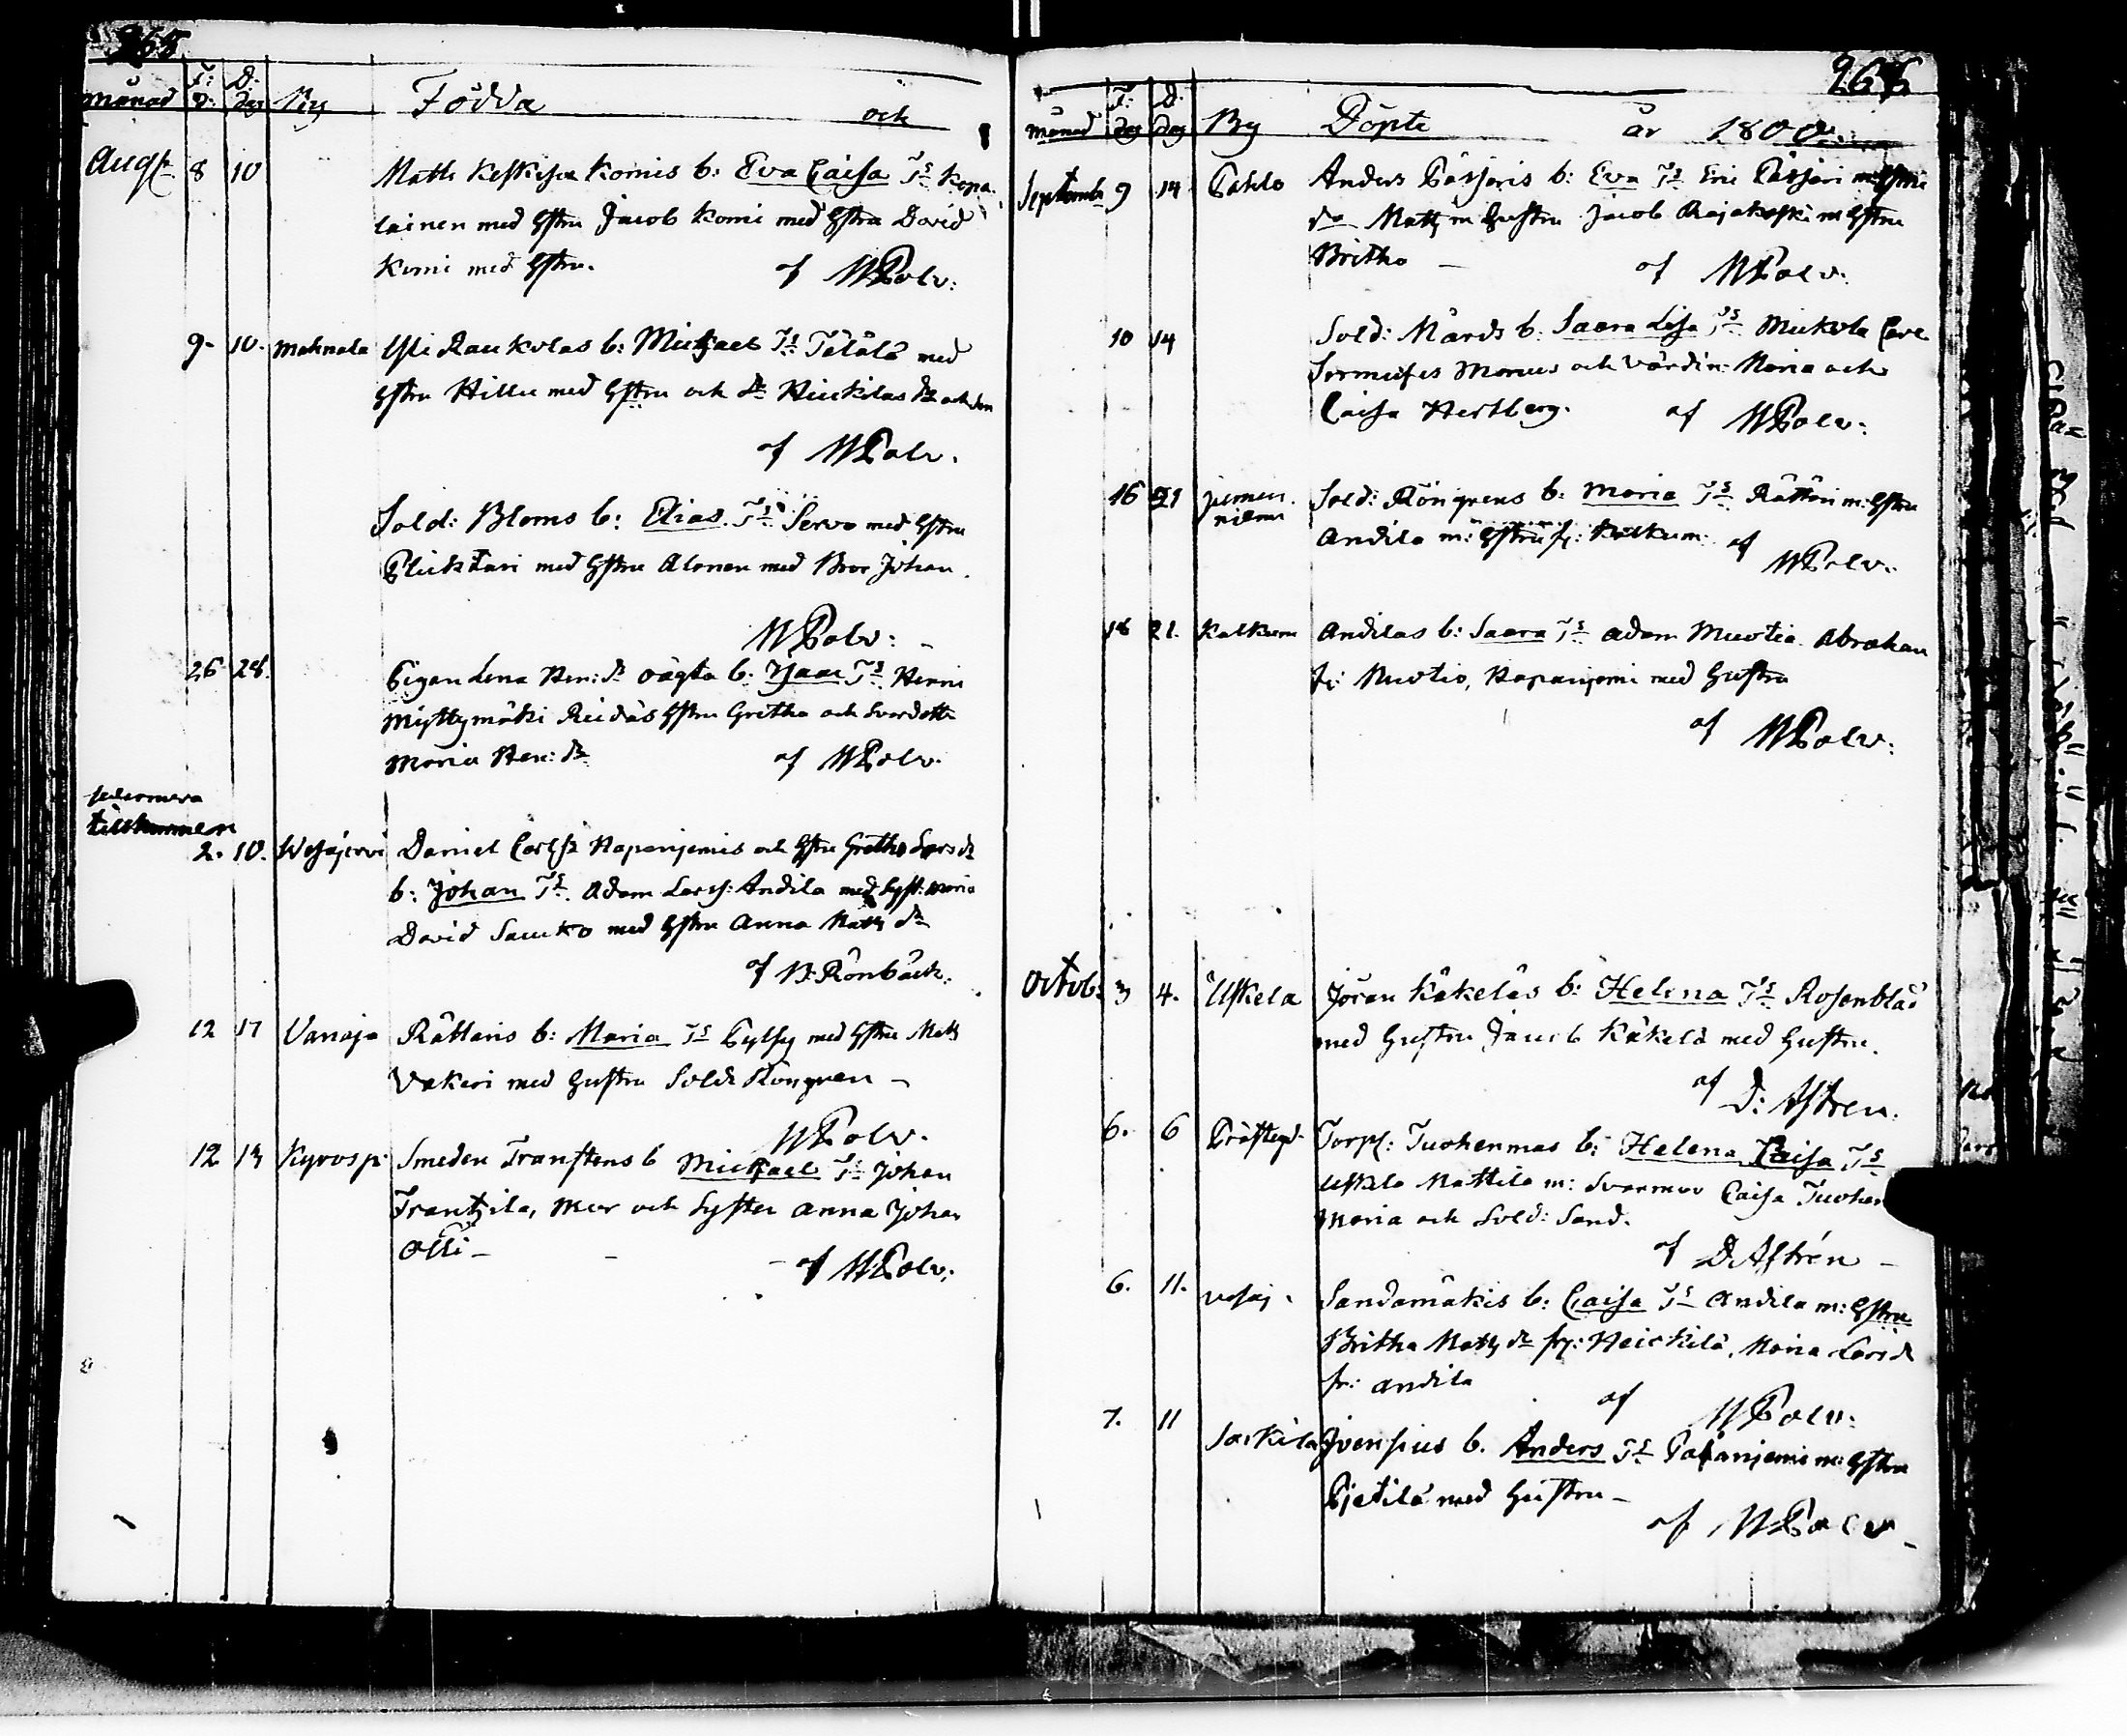 365
månad F: D: D: dag By Födda och
Augst 8 10 Matts Keskisen Komis b: Eva Caisa Ts Kopa
lainen med hstru Jacob Komi med hstru David
Komi med hstru. af MPolv:
9. 10. Mahnala Ylli Raukolas b: Michael Ts Tälälä med
hstru Hillu med hstru och dr Heickilas dr och son
af MPolv.
Sold: Bloms b: Elias Ts Servo med hstru
Plickitari med hstru Alanen med Bror Johan.
MPolv:
26 28. Pigan Lena Hen: dr oägta b. Isaac Ts Henric
Myllymäki Reidäs hstru Gretha och Svärdottr
Maria Hen: dr af MPolv.
tillkommen
2. 10. Wesajervi Daniel Carlss Hapanjemis och hstru Gretha Larsdr
b: Johan Ts. Adam Larss: Andila med syst: Maria
David Sauko med hstru Anna Matts dr
af B: Rönbäck.
12 17 Vanaja Rättaris b: Maria Ts Pylsy med hstru Matts
Vakeri med hustru Sold: Röngren –
MPolv.
12 13 Kyrosp: Smeden Franstens b Michael Ts Johan
Frantzila, Mor och Syster Anna Johan
Olli – – – af MPolv:
266
månad F: dag D. dag By Döpte år 1800.
Septembr 9 14 Pahlo Anders Päsjäris b: Eva Ts Eric Päsjäri m: hstru
do Matts m hustru Jacob Rajakoski m hstru
Britha – af MPolv:
10 14 Sold: Mårds b: Saara Lisa Ts Muckola Carl
Sormuses Monus och Värdin: Maria och
Caisa Hertberg. af MPolv:
16 21 jumes.
niemi Sold: Röngrens b: Maria Ts Rättäri m: hstru
Andila m: hstru fr: Kalkum: af
MPolv:
18 21. Kalkum Andilas b: Saara Ts Adam Muotia Abraham
fr: Muotio, Hapanjemi med hustru
af MPolv:
Octob: 3 4. Uskela Jöran Käkeläs b: Helena Ts Rosenblad
med hustru Jacob Käkelä med hustru.
af D: Astren.
6. 6 Prästegd. Torp: Tuohenmas b: Helena Caisa Ts
Uskela Mattila m: Svärmor Caisa Tuohen
Maria och Sold: Sand.
af D. Astrén –
6. 11. vesaj. Sandamäkis b: Caisa Ts Andila m: hstru
Britha Matts dr fr: Heickilä, Maria Lars dr
fr: Andila
af MPolv:
7. 11 Sarkila Jvenpius b. Anders Ts Papanjemi m: hstru
Pjetilä med hustru –
af MPolv –